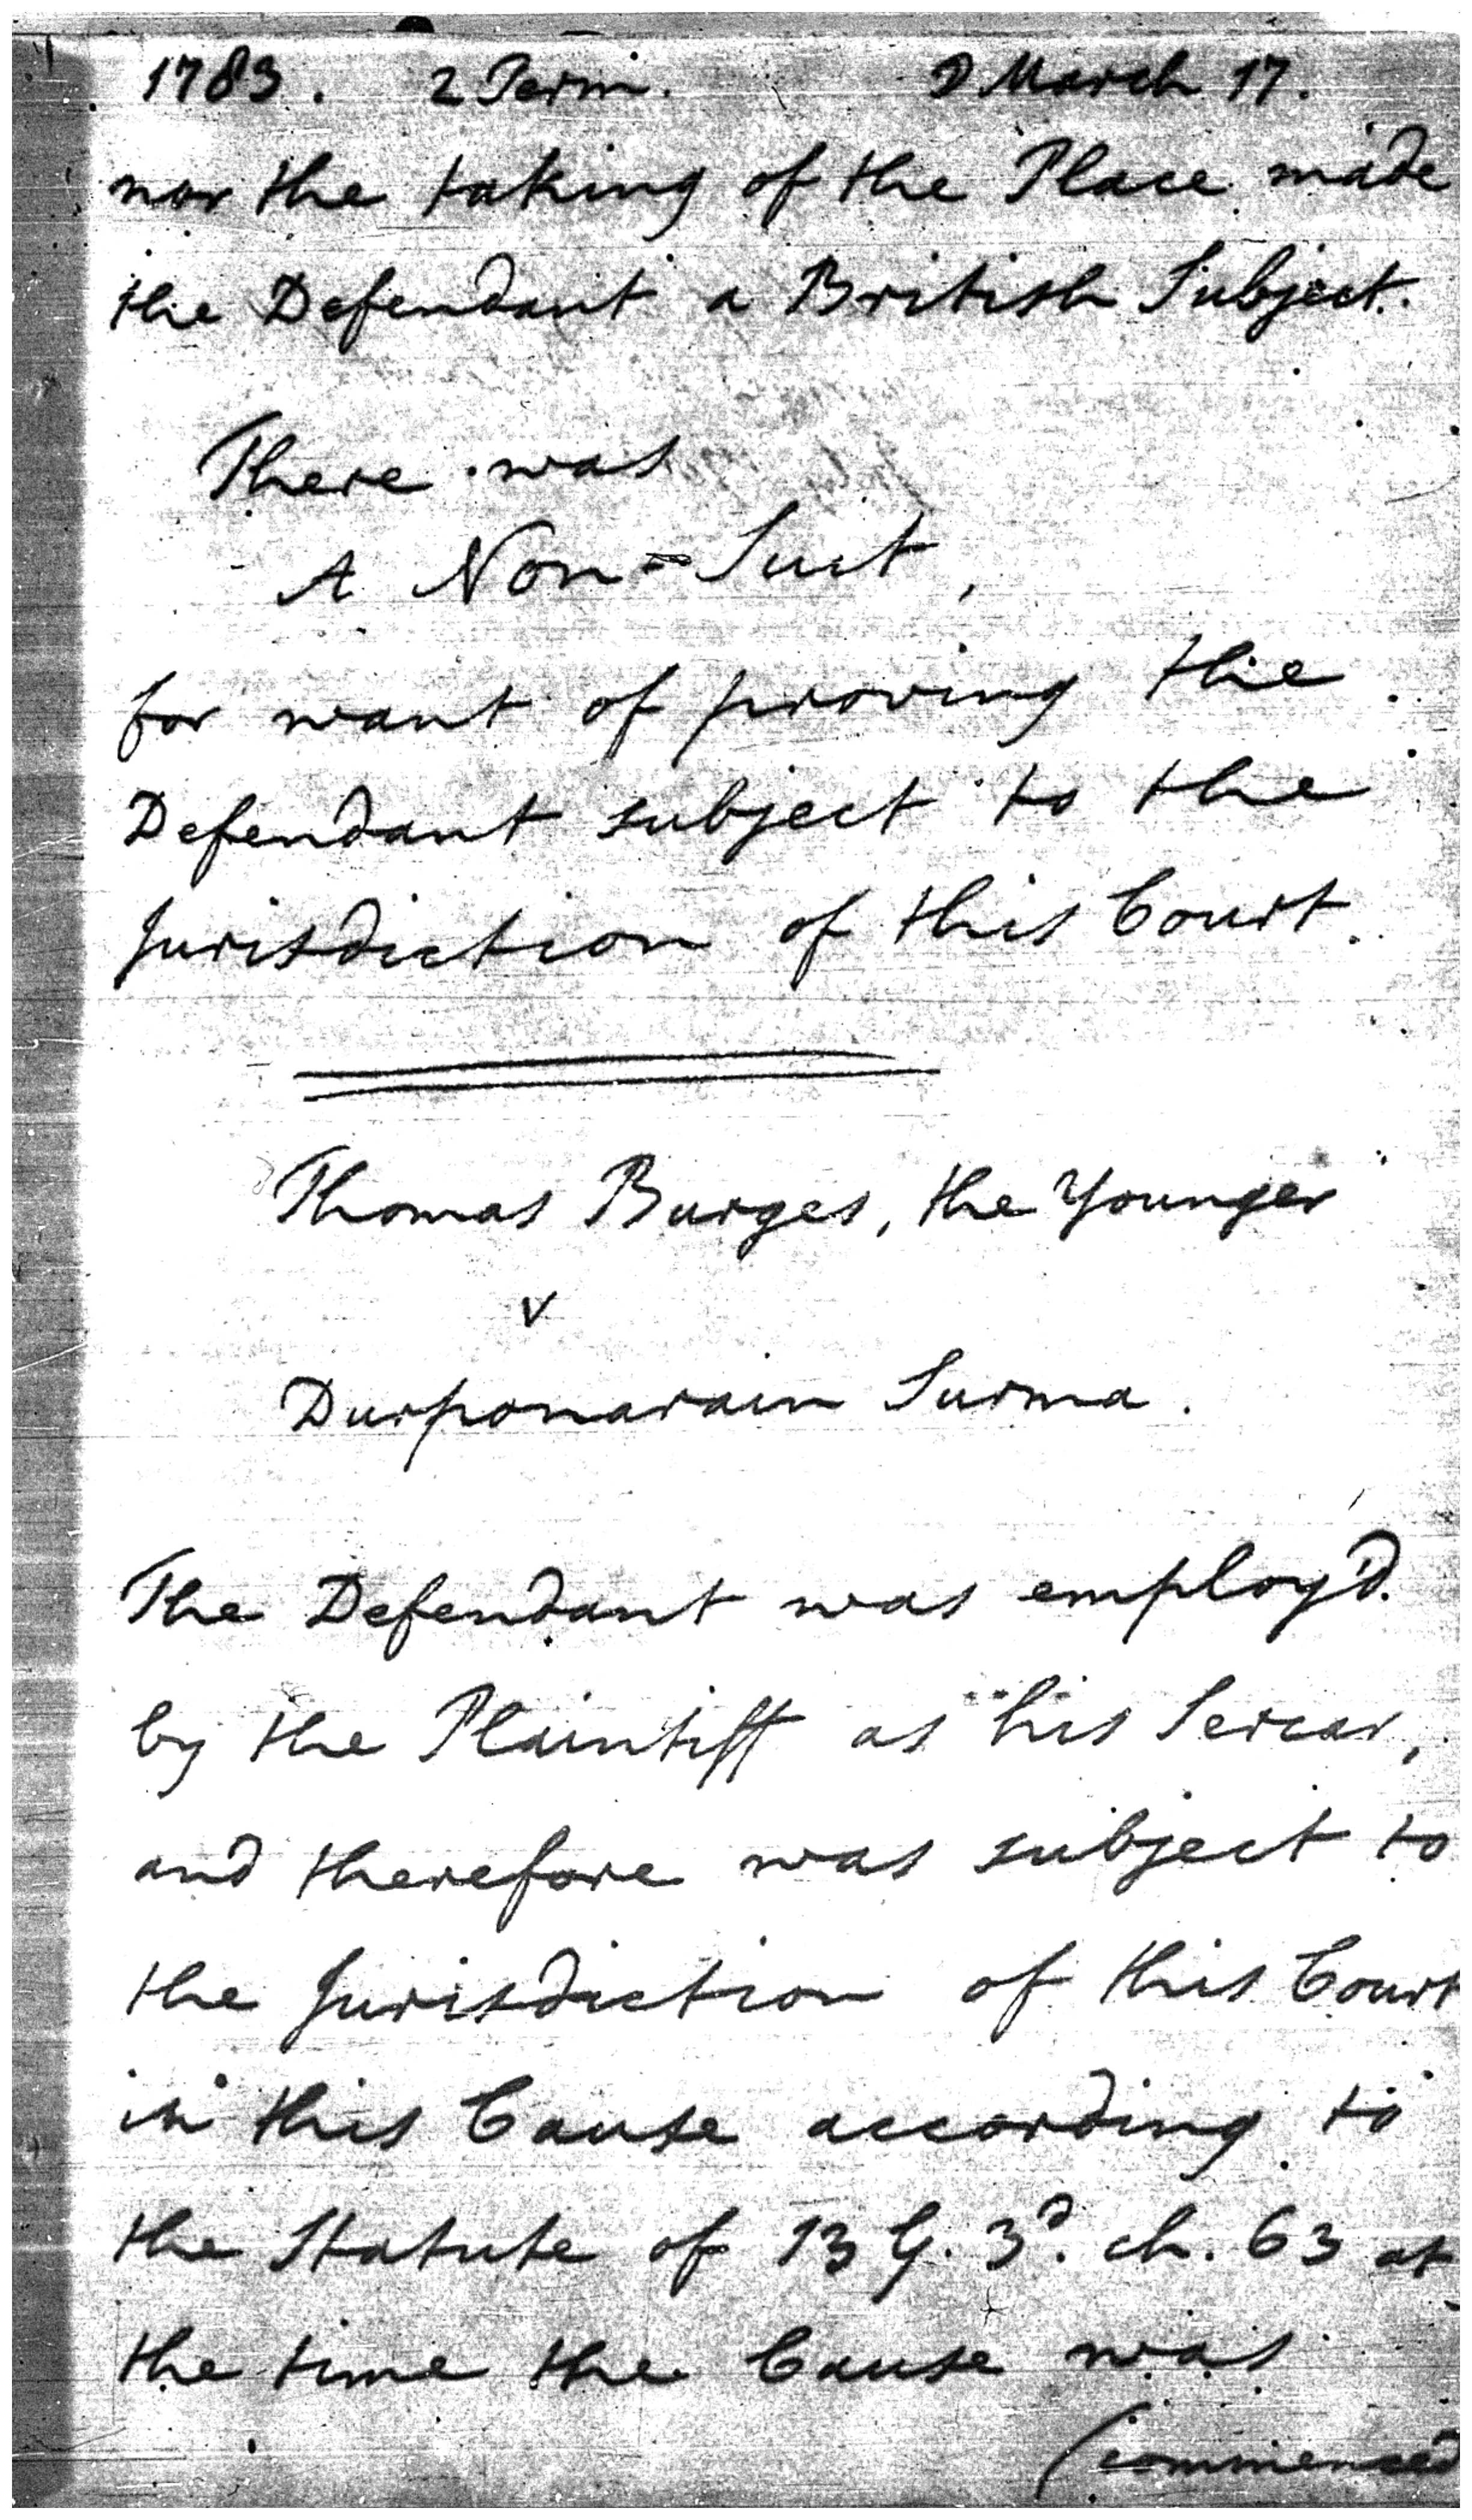 1783. 2 Term. D March 17.
nor the taking of the Place made
the Defendant a British Subject.
There was
A Non=Suit,
for want of proving the
Defendant subject to the
Jurisdiction of this Court.
Thomas Burges, the Younger
v
Durponarain Surma.
The Defendant was employ'd
by the Plaintiff as his Sercar,
and therefore was subject to
the Jurisdiction of this Court
in this Cause according to
the Statute of 13 G. 3d. ch. 63 at
the time the Cause was
(commenced